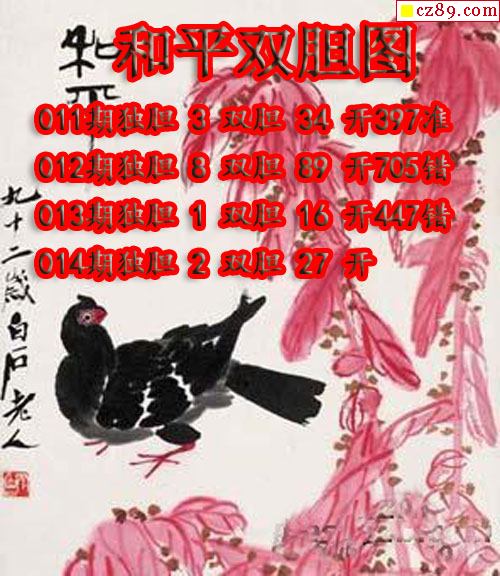 cz89.com
和平双胆图
和平
011期独胆 3 双胆 34 开397准
012期独胆 8 双胆 89 开705错
013期独胆 1 双胆 16 开447错
014期独胆 2 双胆 27 开
九十二岁白石老人